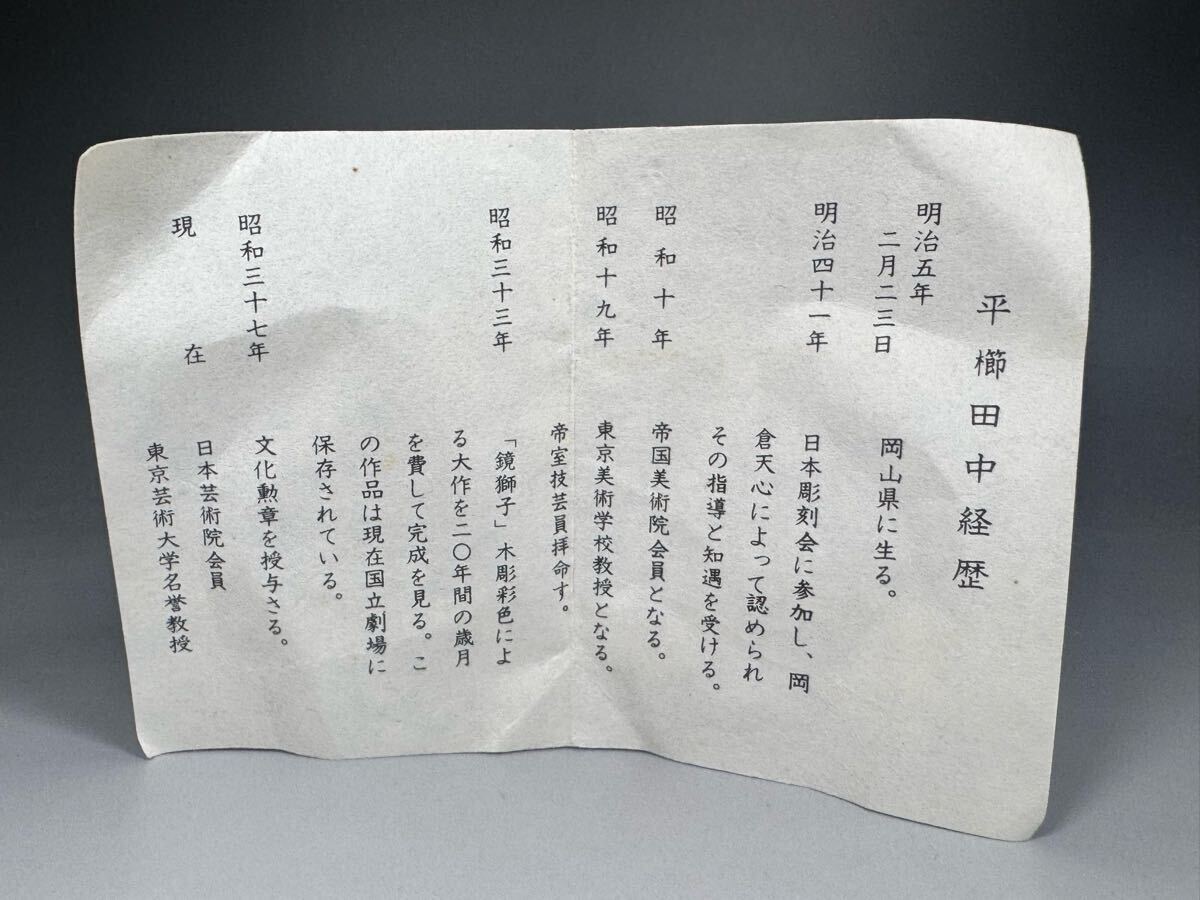 平櫛田中経歴
明治五年
二月二三日
岡山県に生る。
明治四十一年
日本彫刻会に参加し、岡
倉天心によって認められ
その指導と知遇を受ける。
昭和十年
帝国美術院会員となる。
昭和十九年
東京美術学校教授となる。
帝室技芸員拝命す。
昭和三十三年
「鏡獅子」木彫彩色によ
る大作を二〇年間の歳月
を費して完成を見る。こ
の作品は現在国立劇場に
保存されている。
昭和三十七年
文化勲章を授与さる。
現在
日本芸術院会員
東京芸術大学名誉教授